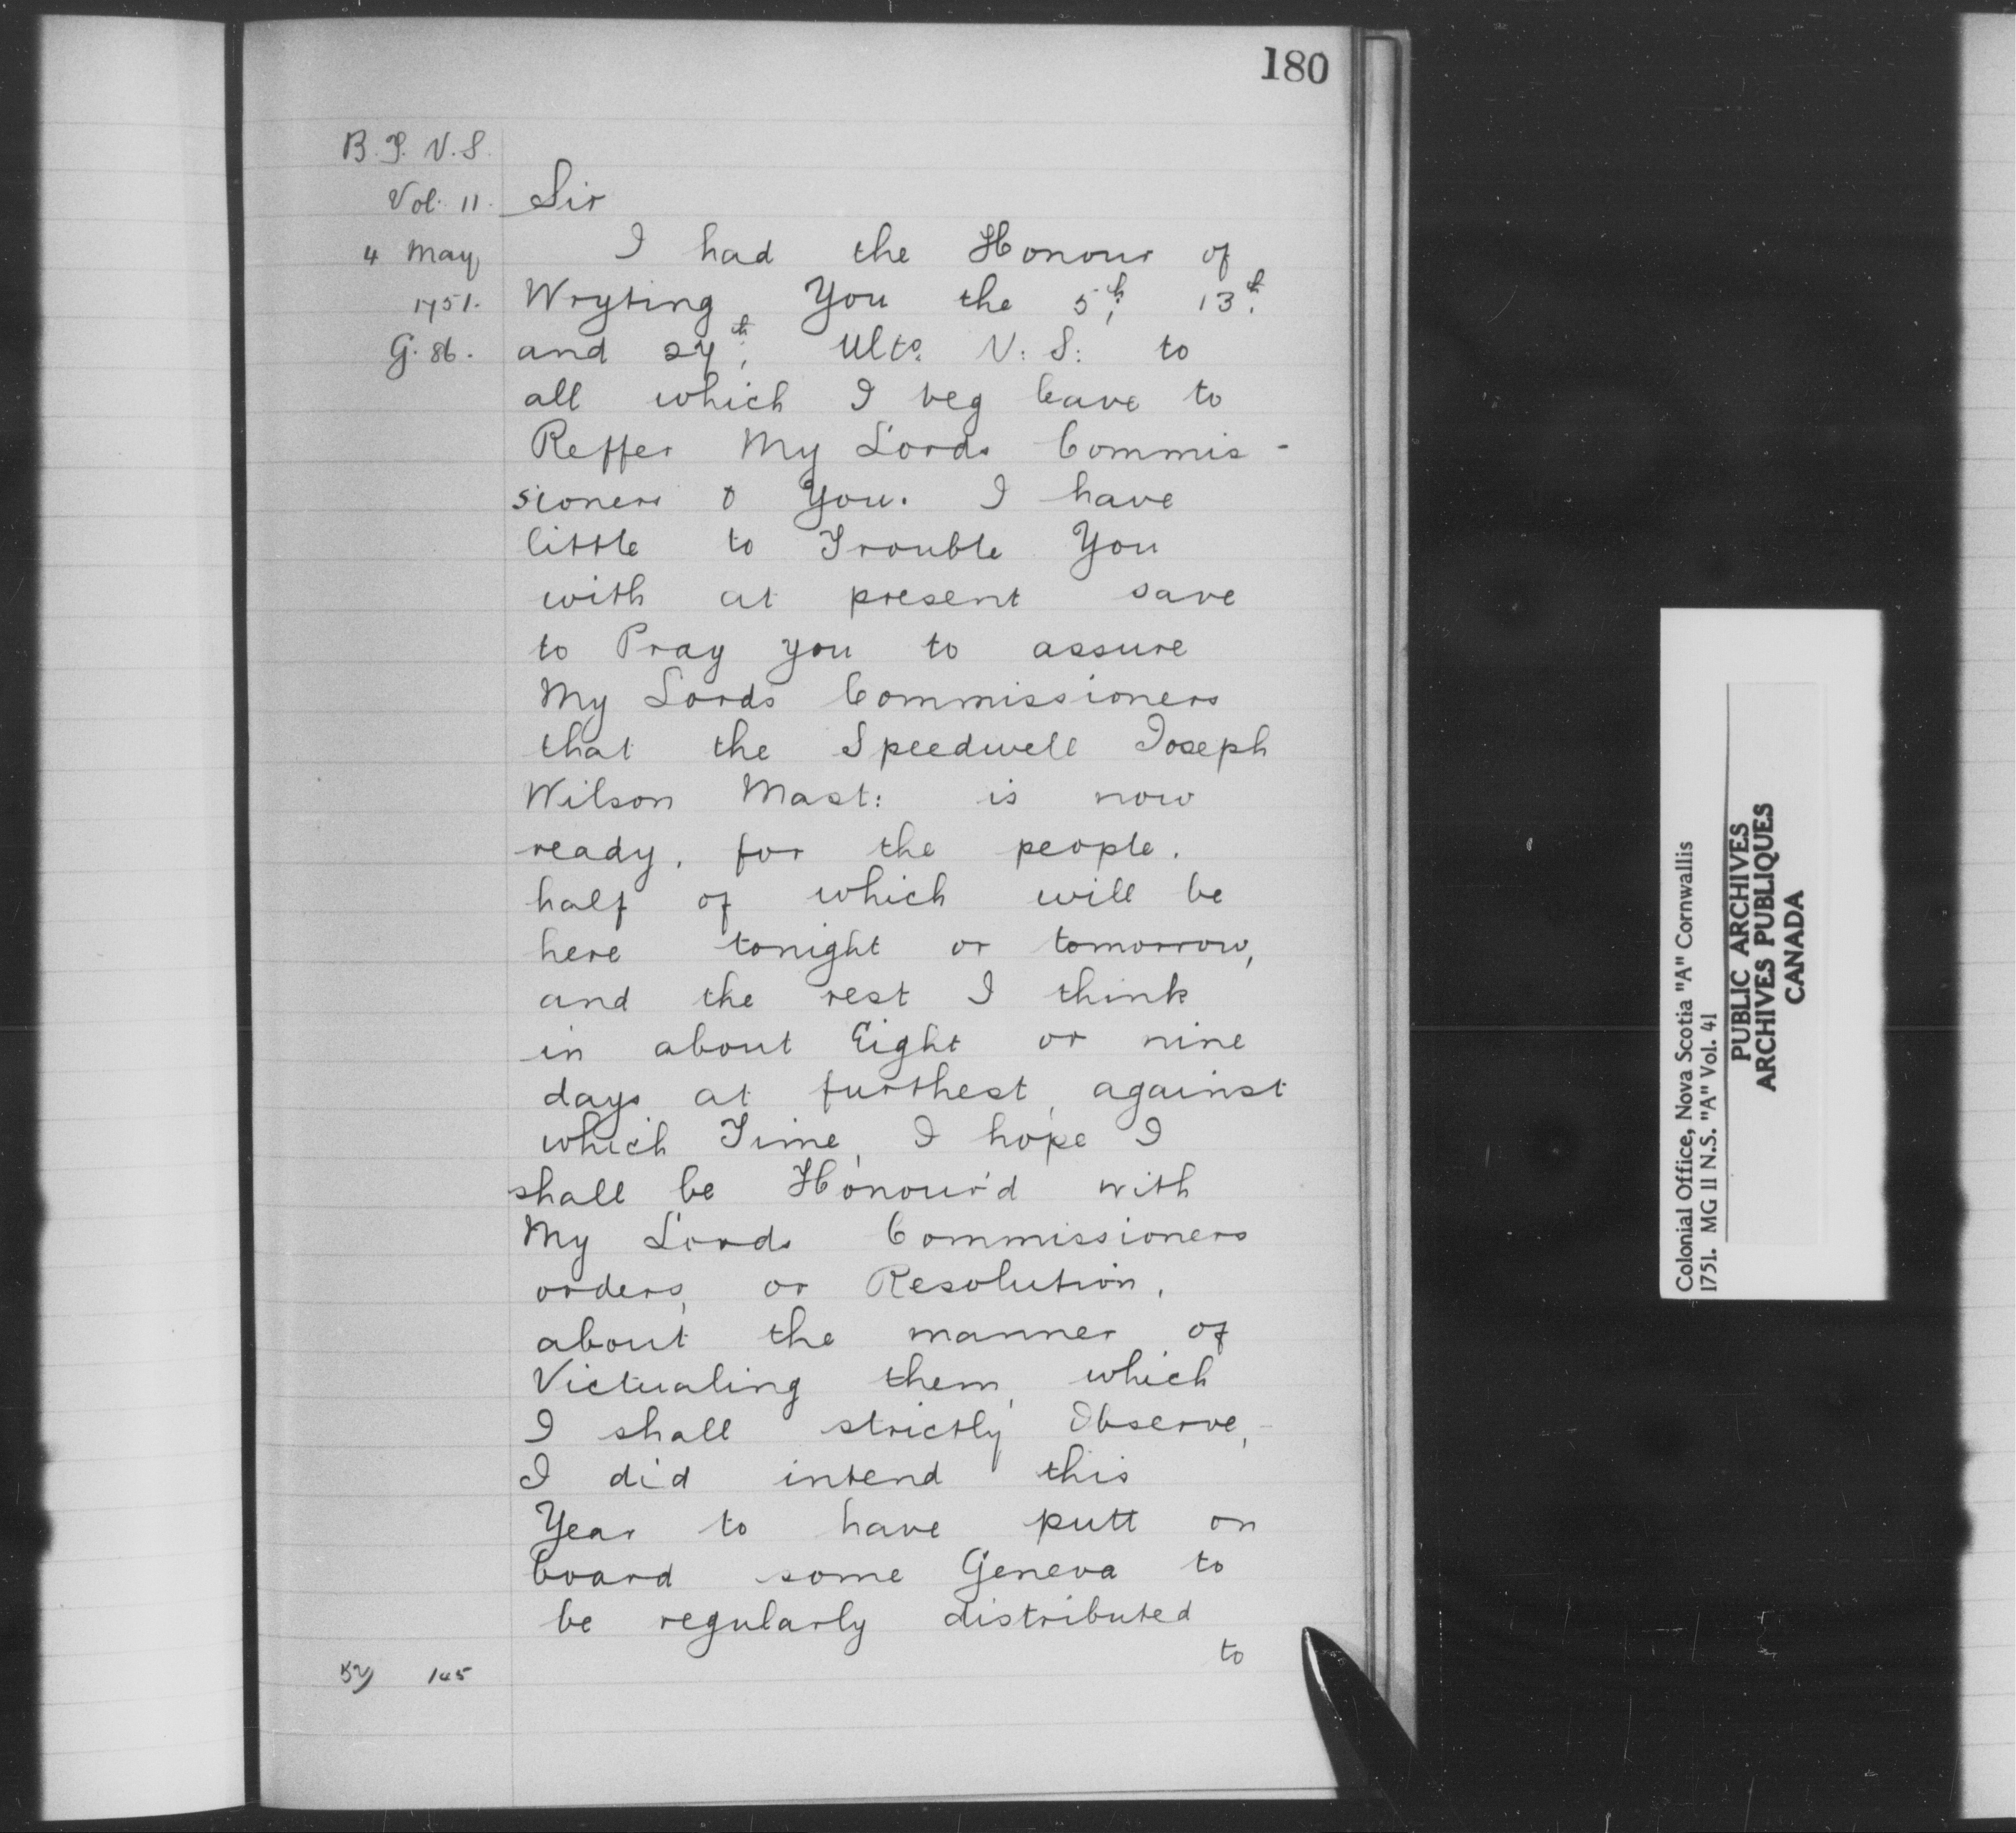 180
B. T. N. S.
Vol. 11.
4 May
1751.
G. 86.
Sir
I had the Honour of
Wryting You the 5th, 13th.
and 27th, Ulto. N: S: to
all which I beg leave to
Reffer My Lords Commis-
sioners & You. I have
little to Trouble You
with at present save
to Pray you to assure
My Lords Commissioners
that the Speedwell Joseph
Wilson Mast: is now
ready, for the people.
half of which will be
here tonight or tomorrow,
and the rest I think
in about Eight or nine
days at furthest, against
which Time, I hope I
shall be Honour'd with
My Lords Commissioners
orders, or Resolution,
about the manner of
Victualing them, which
I shall strictly Observe,
I did intend this
Year to have putt on
board some Geneva to
be regularly distributed
to
145
Colonial Office, Nova Scotia "A" Cornwallis
1751. MG 11 N.S. "A" Vol. 41
PUBLIC ARCHIVES
ARCHIVES PUBLIQUES
CANADA